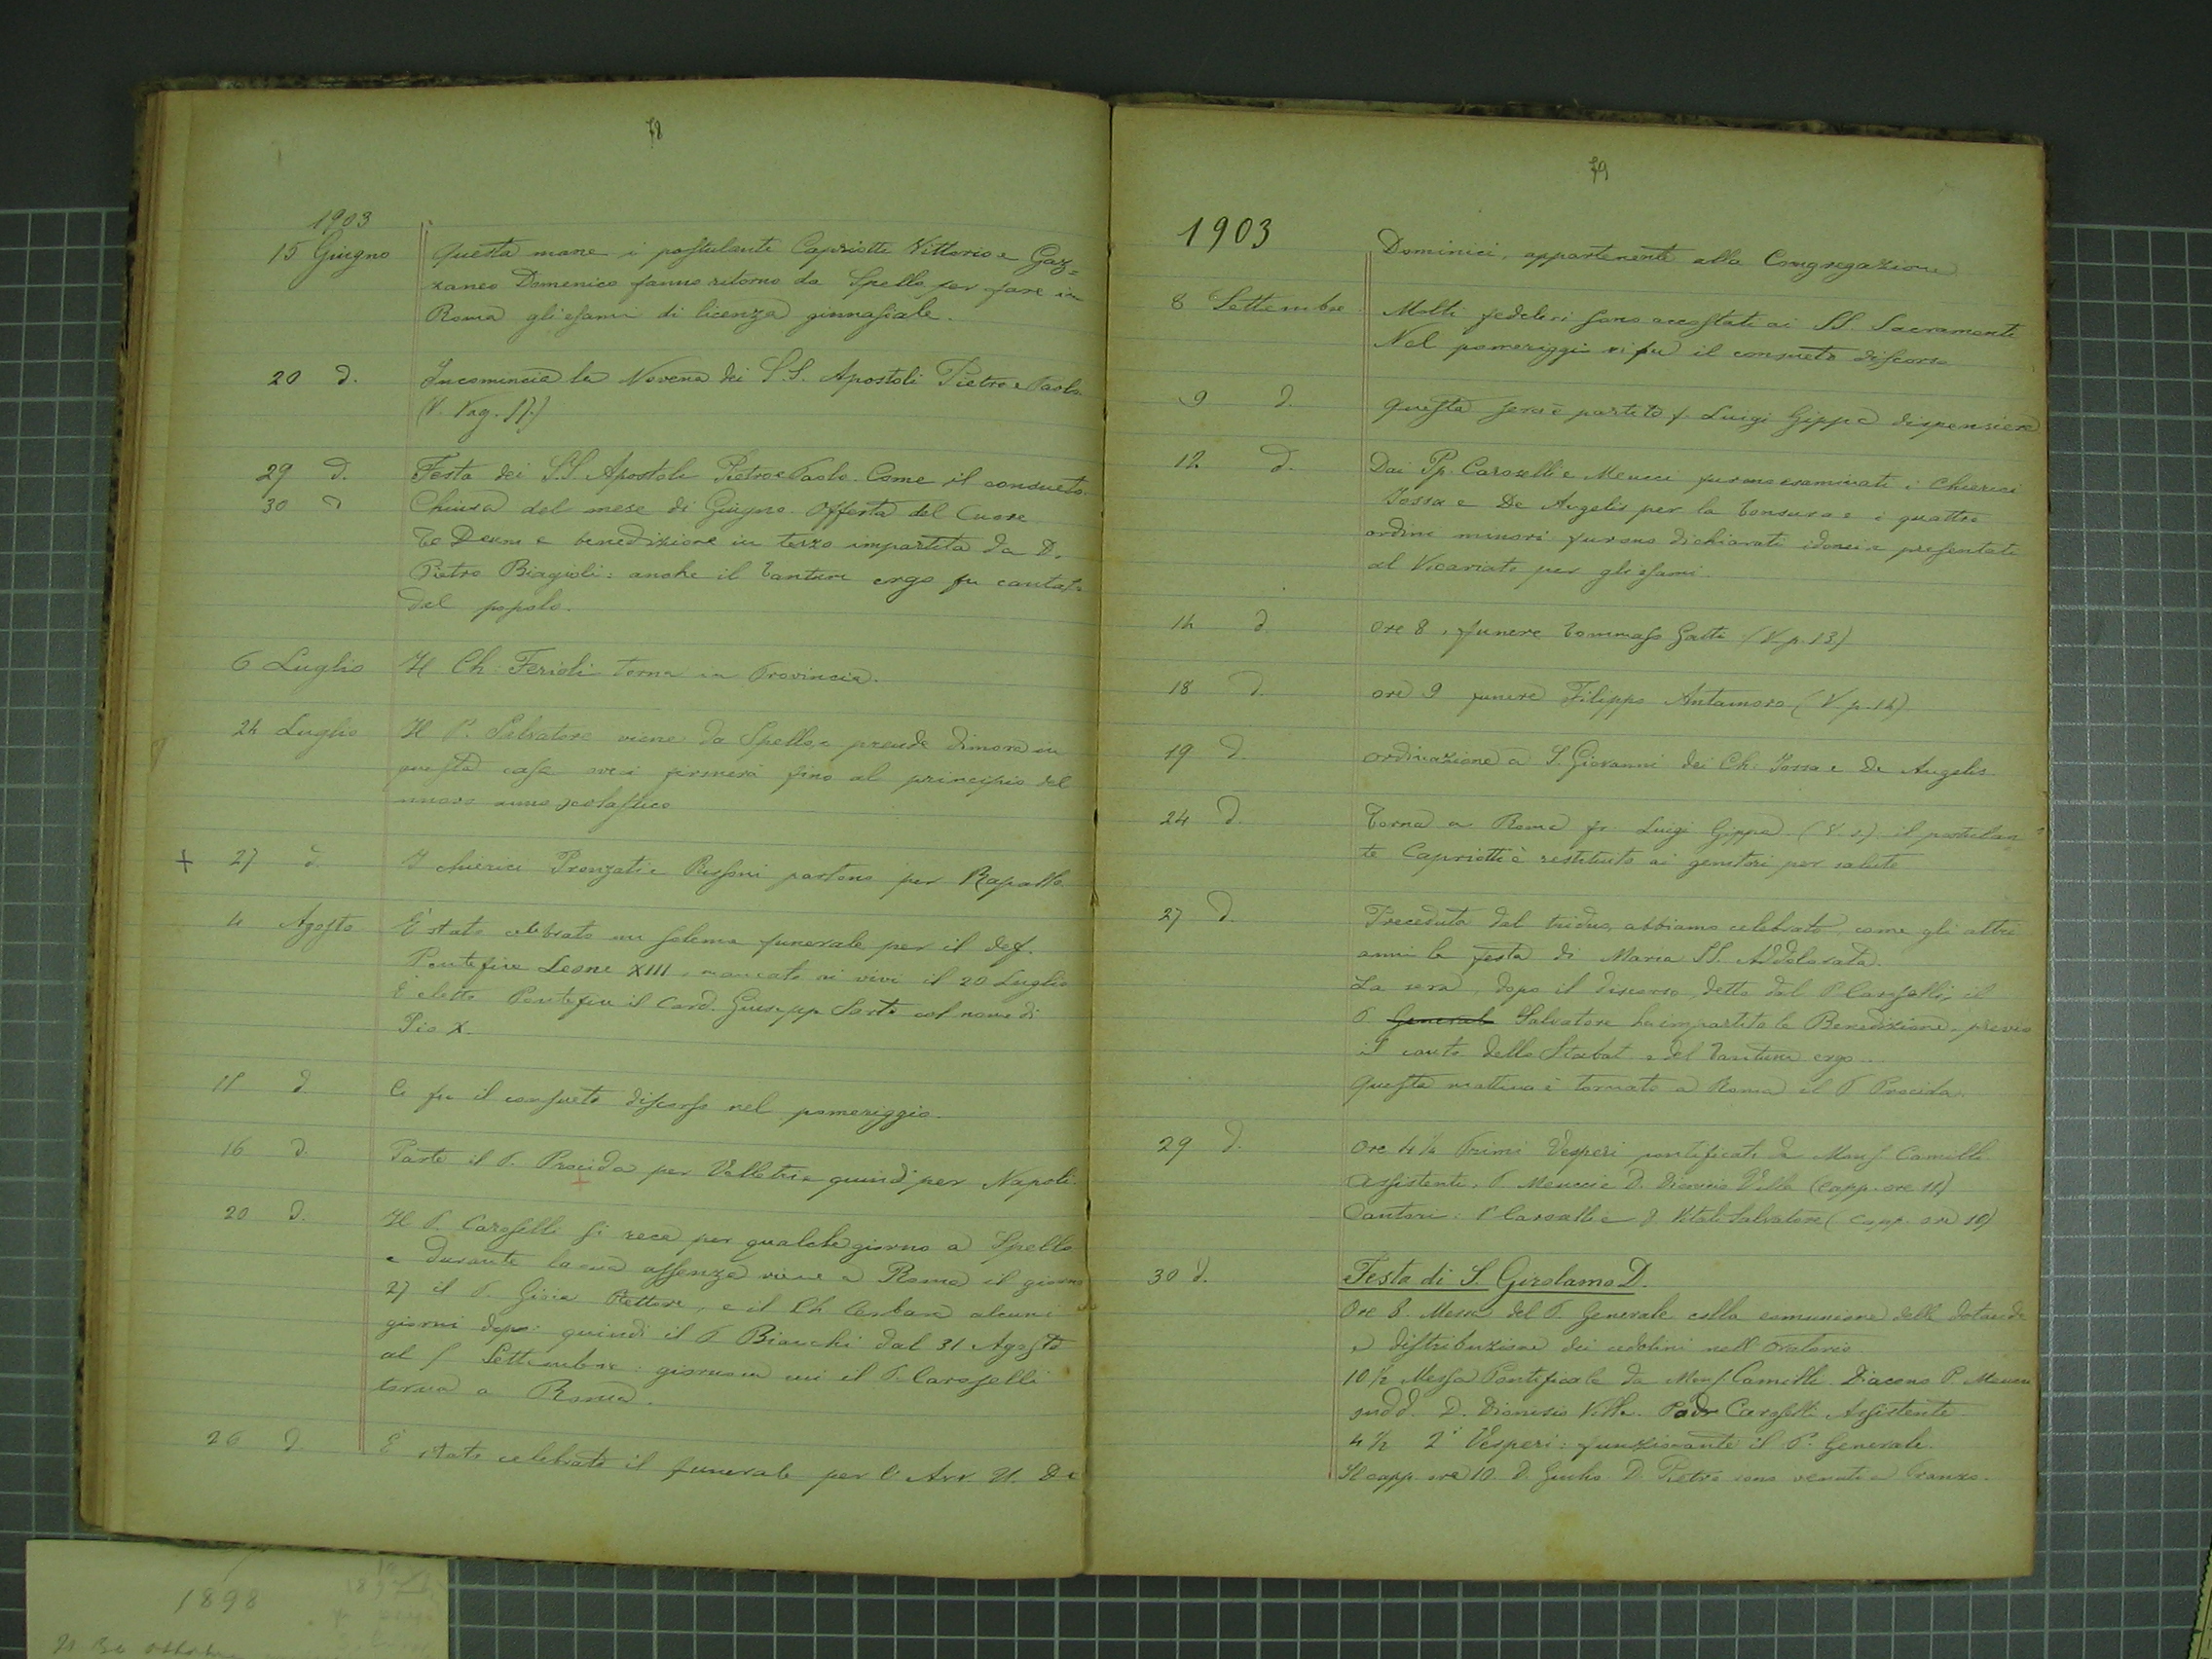 78
1903
15 Giugno Questa mane i postulanti Capriotti Vittorio e Gaz=
zaneo Domenico fanno ritorno da Spello per fare in
Roma gli esami di licenza ginnasiale.
20 d. Incomincia la Novena dei S.S. Apostoli Pietro e Paolo.
(V. Pag. 17.)
29 d. Festa dei S.S. Apostoli Pietro e Paolo. Come il consueto.
30 d Chiusa del mese di Giugno. Offerta del Cuore
Te Deum e benedizione in terzo impartita da D.
Pietro Biagioli: anche il Tantum ergo fu cantato
dal popolo.
6 Luglio Il Ch. Ferioli torna in Provincia.
24 Luglio Il P. Salvatore viene da Spello e prende dimora in
questa casa ove si fermerà fino al principio del
nuovo anno scolastico
+ 27 d. I chierici Pronzati e Bissoni partono per Rapallo.
4 Agosto È stato celebrato un solenne funerale per il def.
Pontefice Leone XIII, mancato ai vivi il 20 Luglio
È eletto Pontefice il Card. Giuseppe Sarto col nome di
Pio X.
15 d. Ci fu il consueto discorso nel pomeriggio.
16 d. Parte il P. Procida per Velletri e quindi per Napoli.
20 d. Il P. Caroselli si reca per qualche giorno a Spello
e durante la sua assenza viene a Roma il giorno
27 il P. Gioia Rettore, e il Ch alcuni
giorni dopo: quindi il P. Bianchi dal 31 Agosto
al 5 Settembre: giorno in cui il P. Caroselli
torna a Roma.
26 d. È stato celebrato il funerale per l'Avv. U. De
79
1903
Dominici, appartenente alla Congregazione
8 Settembre Molti fedeli si sono accostati ai SS. Sacramenti
Nel pomeriggio vi fu il consueto discorso
9 d. Questa sera è partito f. Luigi Gippa dispensiere
12 d. Dai Pp. Caroselli e Meucci furono esaminati i Chierici
Iossa e De Angelis per la tonsura e i quattro
ordini minori furono dichiarati idonei e presentati
al Vicariato per gli esami.
14 d. Ore 8, funere Tommaso Gatti (V. p. 13)
18 d. ore 9 funere Filippo Antamoro (V. p. 14)
19 d. Ordinazione a S. Giovanni dei Ch. Iossa e De Angelis.
24 d. Torna a Roma fr. Luigi Gippa (V. s.) il postulan
te Capriotti è restituito ai genitori per salute
27 d. Preceduta dal triduo, abbiamo celebrato, come gli altri
anni la festa di Maria SS. Addolorata.
La sera, dopo il discorso, detto dal P. Caroselli, il
P. Generale Salvatore ha impartito la Benedizione, previo
il canto dello Stabat e del Tantum ergo.
Questa mattina è tornato a Roma il P. Procida.
29 d. Ore 4½ Primi Vesperi pontificati da Mons. Camilli.
Assistenti, P. Meucci e D. Dionisio Villa (capp. ore 11)
Cantori: P. Caroselli e f. Vitali Salvatore (capp. ore 10)
30 d. Festa di S. Girolamo D.
Ore 8. Messa del P. Generale colla comunione delle dotande
e distribuzione dei cedolini nell'Oratorio.
10½ Messa Pontificale da Mons. Camilli. Diacono P. Meucci
sudd. D. Dionisio Villa. Padr Caroselli Assistente.
4½ 2i Vesperi: funzionante il P. Generale.
Il capp. ore 10. D. Giulio D. Pietro sono venuti a Pranzo.
1898